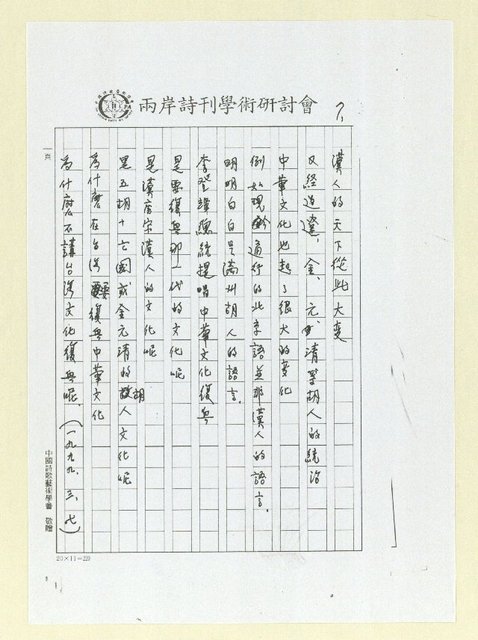 兩岸詩刊學術研討會
7.
漢人的天下從此大變
又經過遼、金、元、清等胡人的統治
中華文化也起了很大的變化
例如現今通行的北京語並非漢人的語言。
明明白白是滿州胡人的語言。
李登輝總統提唱中華文化復興
是要復興那一代的文化呢
是漢唐宋漢人的文化呢
是五胡十六國或金元清的胡人文化呢
為什麼在台灣要復興中華文化
為什麼不講台灣文化復興呢。(一九九九、三、七)
頁
中國詩歌藝術學會 敬贈
20×11=220